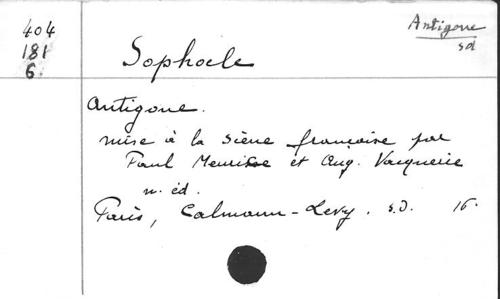 404
181
6.
Antigone
sd
Sophocle
Antigone.
mise à la scène française par
Paul Meurisse et Aug. Vacquerie
n. éd.
Paris, Calmann-Levy. s.d. 16.